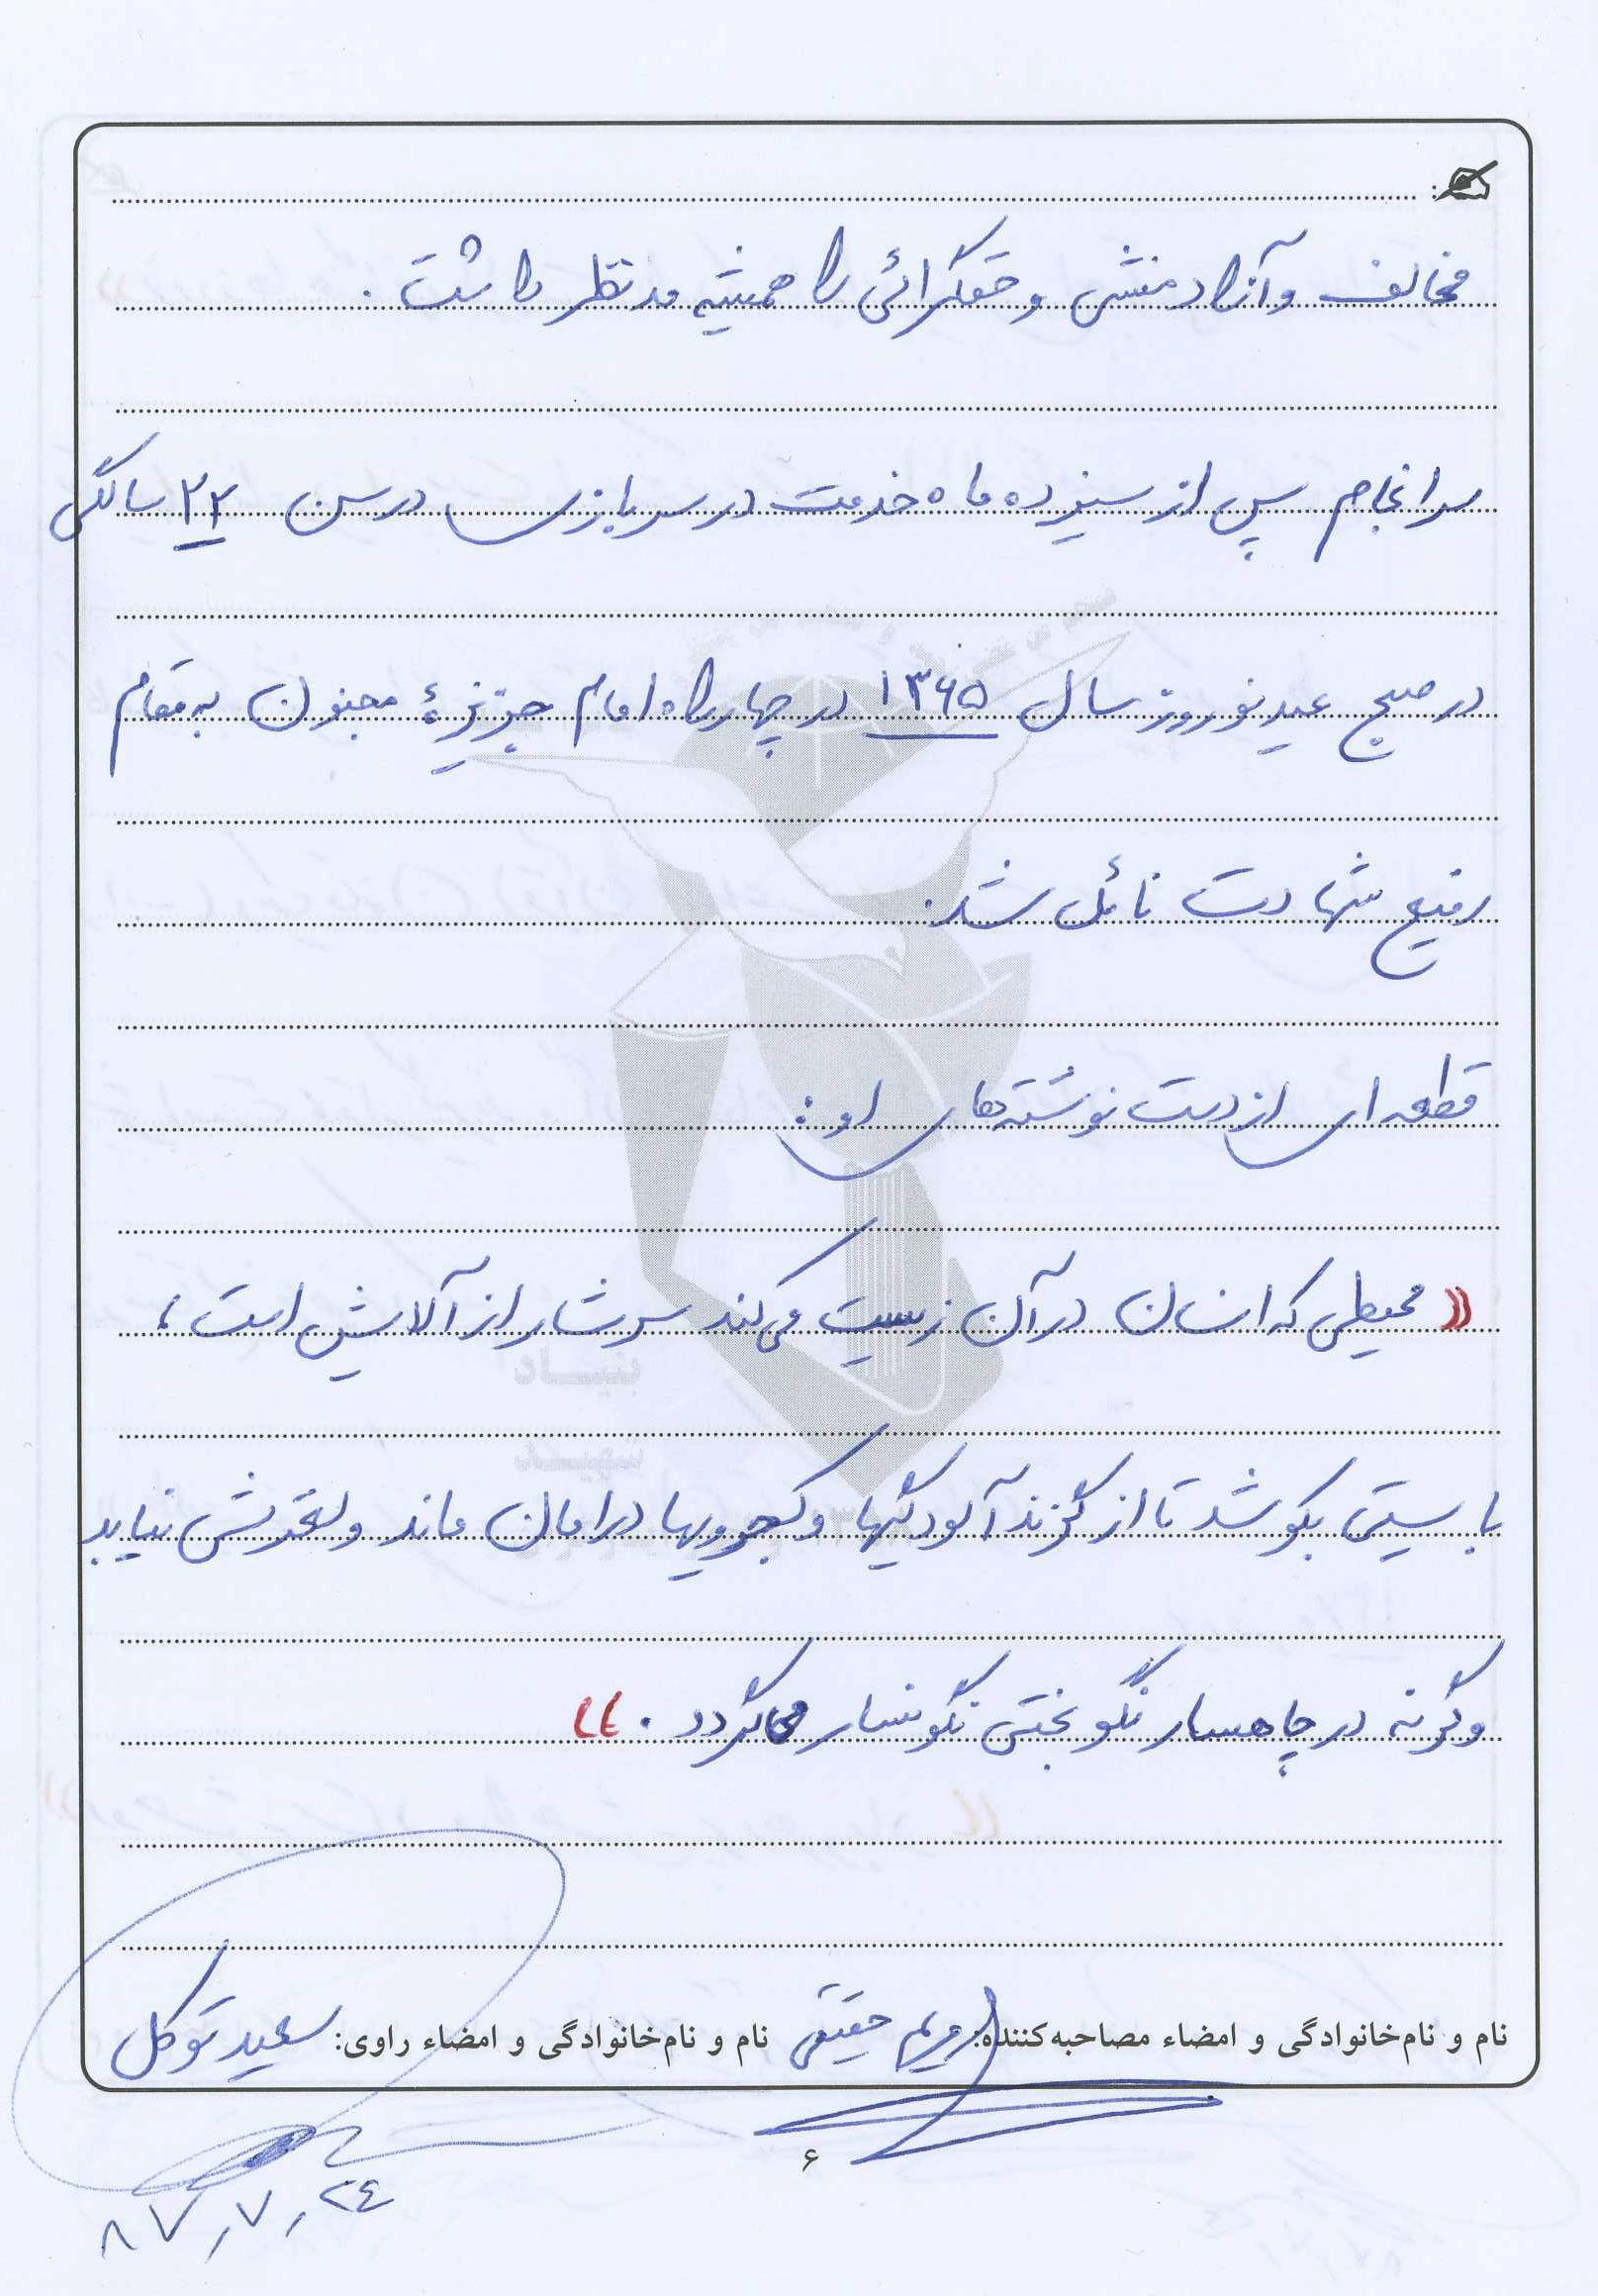 مخالف و آزادمنشی و حقگرائی را همیشه مدنظر داشت .
سرانجام پس از سیزده ماه خدمت در سربازی در سن ۲۲ سالگی
در صبح عید نوروز سال ۱۳۶۵ در چهارراه امام جزیزهٔ مجنون به مقام
رفیع شهادت نائل شد .
قطعه ای از دست نوشته های او :
« محیطی که انسان در آن زیست می کند سرشار از آلایش است ،
بایستی بکوشد تا از گزند آلودگیها و کجرویها در امان ماند و لغزش نیابد
وگرنه در چاهسار نگونبختی نگونسار می گردد . »
نام و نام‌خانوادگی و امضاء مصاحبه‌کننده: مریم حقیقی نام و نام‌خانوادگی و امضاء راوی: سعید توکل
۶
۸۷/۷/۲۴
بنیاد
شهید